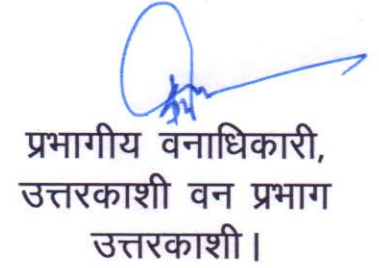 प्रभागीय वनाधिकारी,
उत्तरकाशी वन प्रभाग
उत्तरकाशी।